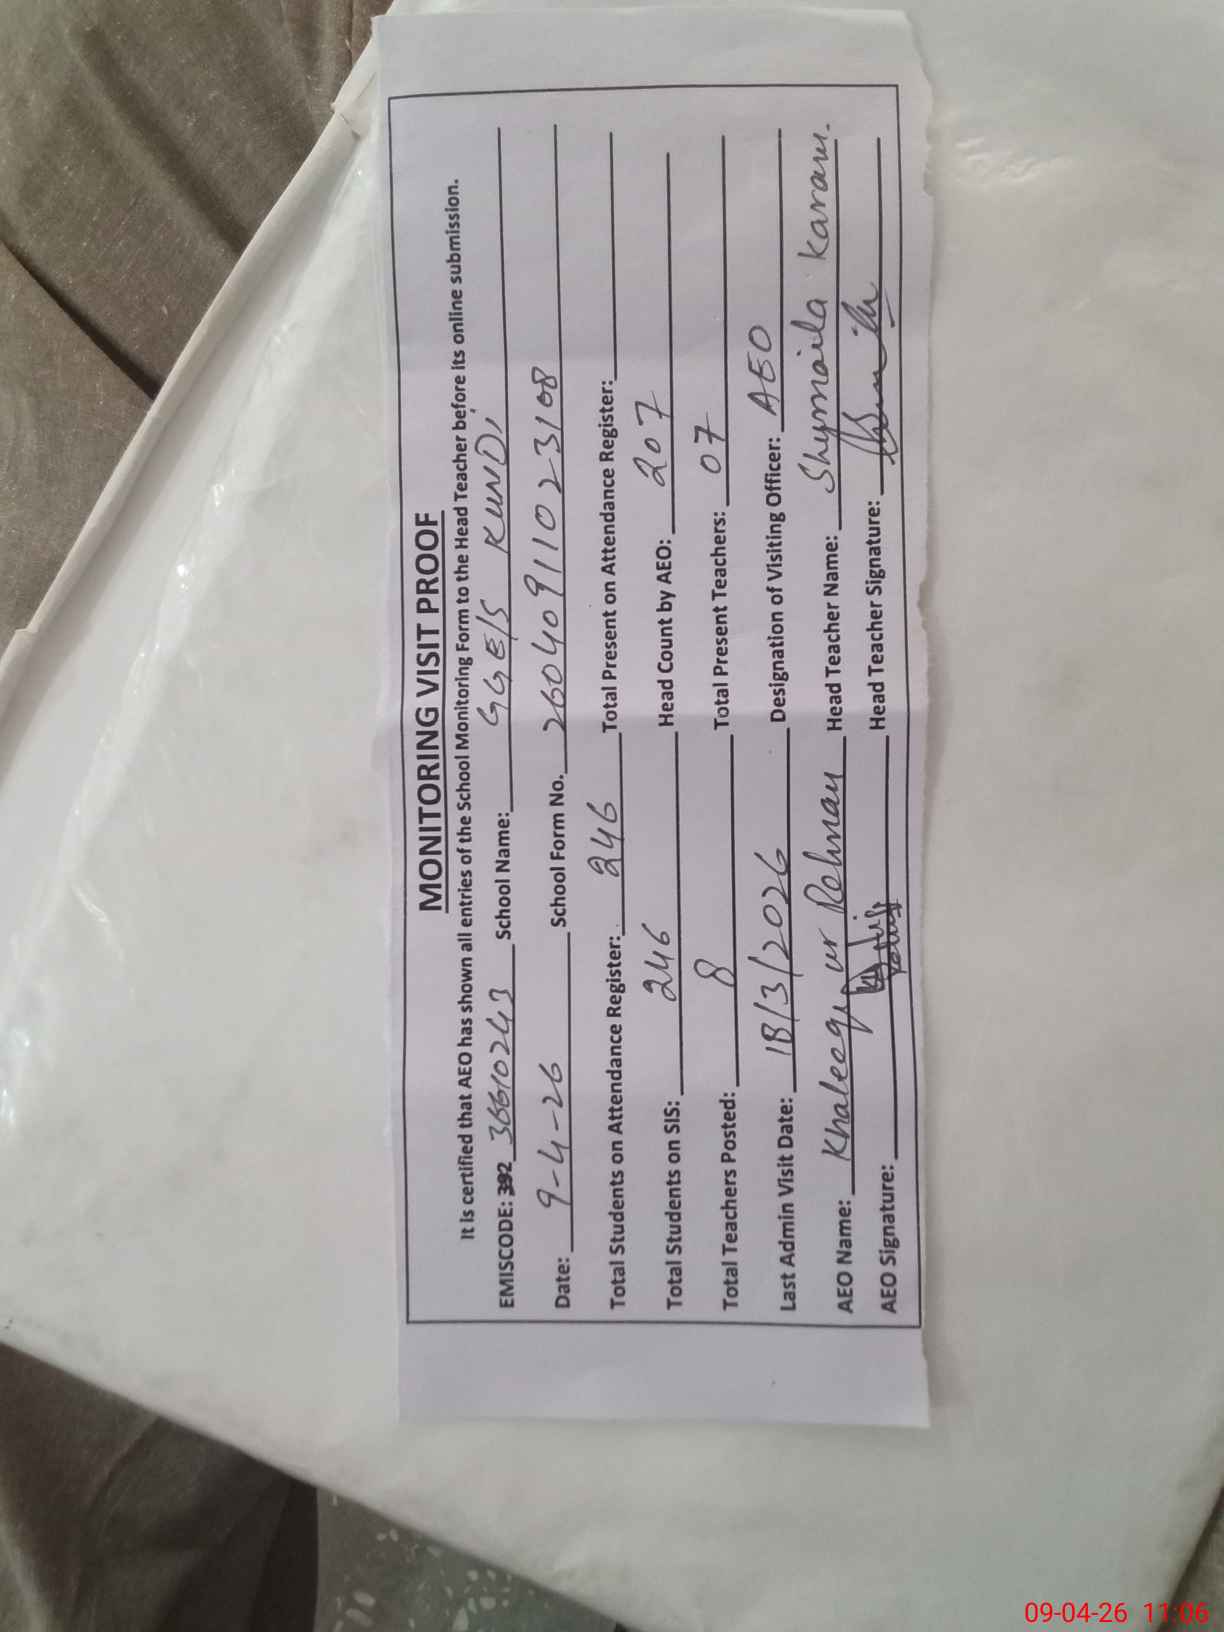 MONITORING VISIT PROOF
It is certified that AEO has shown all entries of the School Monitoring Form to the Head Teacher before its online submission.
EMISCODE: 392 36610243 School Name: GGE/S KUNDI
Date: 9-4-26 School Form No. 26040911023108
Total Students on Attendance Register: 246 Total Present on Attendance Register:
Total Students on SIS: 246 Head Count by AEO: 207
Total Teachers Posted: 8 Total Present Teachers: 07
Last Admin Visit Date: 18/3/2026 Designation of Visiting Officer: AEO
AEO Name: Khaleeq ur Rehman Head Teacher Name: Shymaila Karam.
AEO Signature: Head Teacher Signature:
09-04-26 11:06